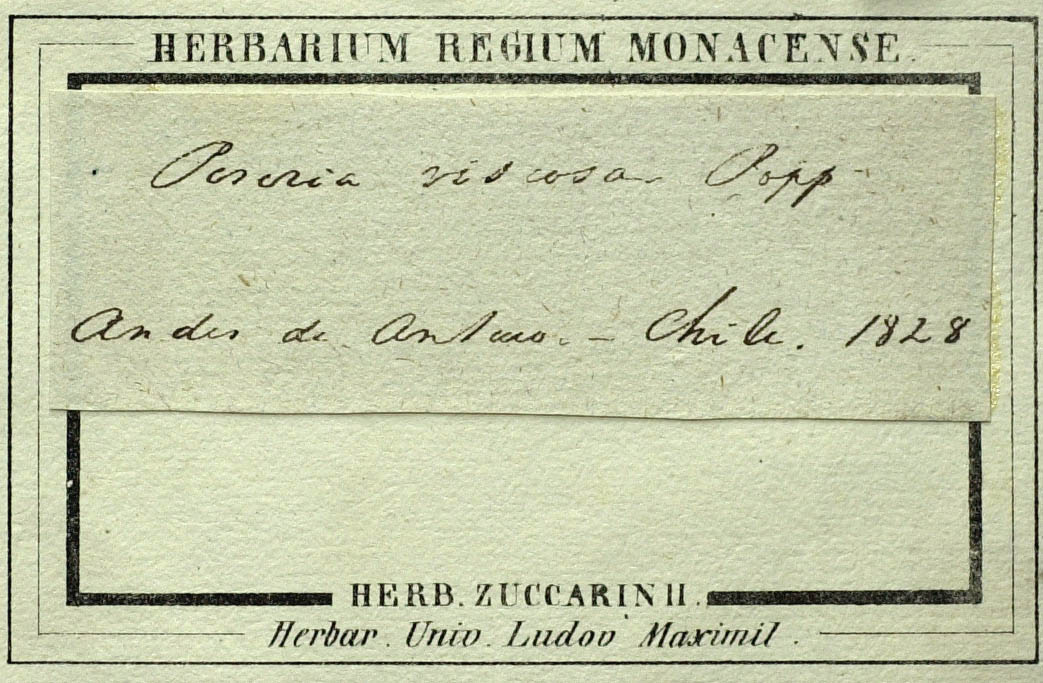 HERBARIUM REGIUM MONACENSE.
Perezia viscosa Popp
Andes de Antuco. – Chile. 1828
HERB. ZUCCARINII.
Herbar. Univ. Ludov Maximil.